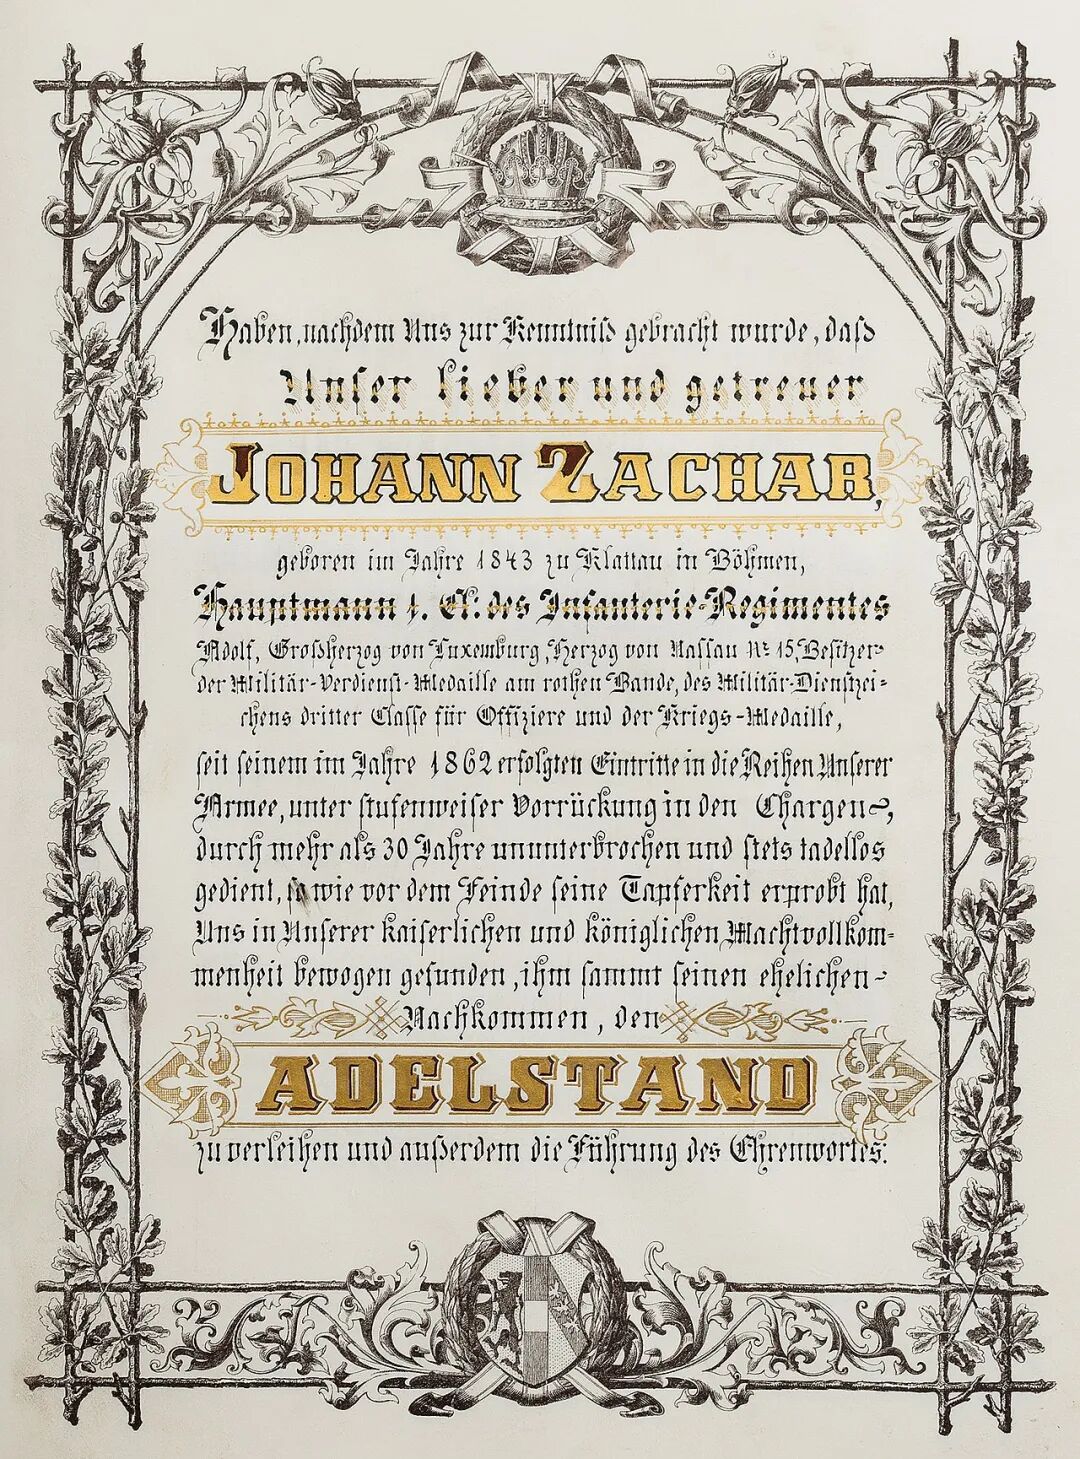 Haben, nachdem Uns zur Kenntniß gebracht wurde, daß
Unser lieber und getreuer
JOHANN ZACHAR,
geboren im Jahre 1843 zu Klattau in Böhmen,
Hauptmann 1. Cl: des Infanterie-Regimentes
Adolf, Großherzog von Luxemburg, Herzog von Nassau Nr 15, Besitzer
der Militär-Verdienst-Medaille am rothen Bande, des Militär-Dienstzei=
chens dritter Classe für Offiziere und der Kriegs-Medaille,
seit seinem im Jahre 1862 erfolgten Eintritte in die Reihen Unserer
Armee, unter stufenweiser Vorrückung in den Chargen,
durch mehr als 30 Jahre ununterbrochen und stets tadellos
gedient, sowie vor dem Feinde seine Tapferkeit erprobt hat,
Uns in Unserer kaiserlichen und königlichen Machtvollkom=
menheit bewogen gefunden, ihm sammt seinen ehelichen
Nachkommen, den
ADELSTAND
zu verleihen und außerdem die Führung des Ehrenwortes: